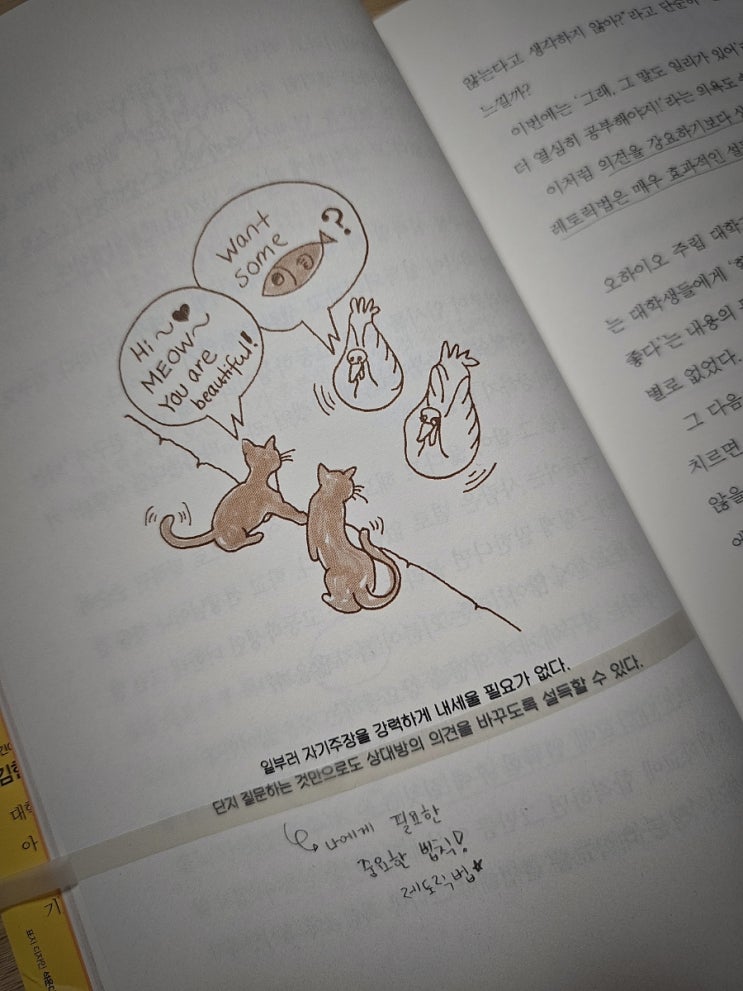 Want
some
?
Hi~♥
MEOW~
You are
beautiful!
일부러 자기주장을 강력하게 내세울 필요가 없다.
단지 질문하는 것만으로도 상대방의 의견을 바꾸도록 설득할 수 있다.
나에게 필요한
중요한 법칙!
레토릭법★
않는다고 생각하지 않아?"라고 단순히
느낄까?
이번에는 '그래, 그 말도 일리가 있어
더 열심히 공부해야지!' 라는 의욕도
이처럼 의견을 강요하기보다
레토릭법은 매우 효과적인
오하이오 주립
는 대학생들에게
좋다'는 내용의
별로 없었다.
그 다음
치르면
않을
대학
아
기
표지 디자인